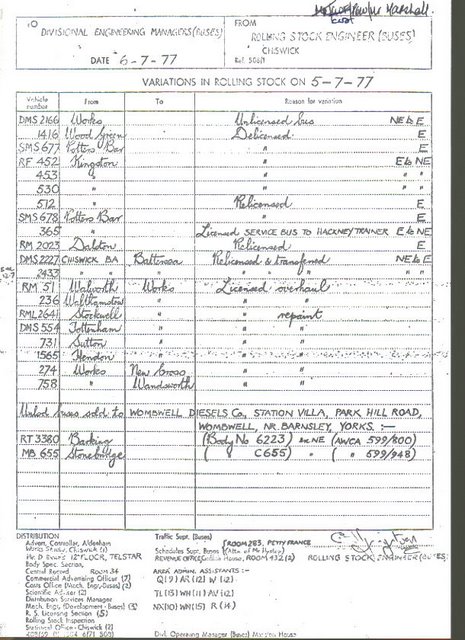 Marshall
East
TO
DIVISIONAL ENGINEERING MANAGERS (BUSES)
DATE 6-7-77
FROM
ROLLING STOCK ENGINEER (BUSES)
CHISWICK
Ref. 508/1
VARIATIONS IN ROLLING STOCK ON 5-7-77
Vehicle number From To Reason for variation
DMS 2166 Works Unlicensed bus NE to E
1416 Wood Green Delicensed E
SMS 677 Potters Bar " E
RF 452 Kingston " E to NE
453 " " " "
530 " "
512 " Relicensed E
SMS 678 Potters Bar " E
365 " Licensed SERVICE BUS TO HACKNEY TRAINER E to NE
RM 2023 Dalston Relicensed E
DMS 2227 CHISWICK BA Battersea Relicensed & transferred NE to E
2433 " " " " " " "
RM 51 Walworth Works Licensed overhaul
236 Walthamstow " " "
RML 2641 Stockwell " " repaint
DMS 554 Tottenham " " "
731 Sutton " " "
1565 Hendon " " "
274 Works New Cross " "
758 " Wandsworth " "
Unlcd buses sold to WOMBWELL DIESELS Co., STATION VILLA, PARK HILL ROAD,
WOMBWELL, NR. BARNSLEY, YORKS. :—
RT 3380 Barking (Body No 6223) NE (AWCA 599/800)
MB 655 Stonebridge ( C655) " ( " 599/948)
DISTRIBUTION
Advert. Controller, Aldenham
Works Study, Chiswick (1)
Mr. D. Evans 12th FLOOR, TELSTAR
Body Spec. Section,
Central Record ROOM 34
Commercial Advertising Officer (7)
Costs Office (Mech. Eng.) Chiswick (2)
Scientific Adviser (2)
Distribution Services Manager
Mech. Engr. (Development - Buses) (3)
R. S. Licensing Section (5)
Rolling Stock Inspection
Statistical Office - Chiswick (2)
Traffic Supt. (Buses)
ROOM 283, PETTY FRANCE
Schedules Supt. Buses
REVENUE OFFICE, House, ROOM 432 (2)
AREA ADMIN. ASSISTANTS :-
Q(9) AR (12) W (12)
TL (13) WH (11) AV (12)
NX (10) WN (15) R (14)
Divl. Operating Manager (Buses)
ROLLING STOCK ENGINEER (BUSES)